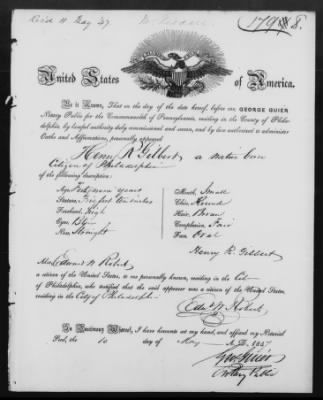 Rec'd 11 May '47
United States of America.
Be it Known, That on the day of the date hereof, before me, GEORGE GUIER
Notary Public for the Commonwealth of Pennsylvania, residing in the County of Phila-
delphia, by lawful authority duly commissioned and sworn, and by law authorized to administer
Oaths and Affirmations, personally appeared
Henry R Gilbert a native born
Citizen of Philadelphia
of the following description:
Age, years
Stature, Five feet inches
Forehead, High
Eyes, Blue
Nose, Straight
Mouth, Small
Chin, Round
Hair, Brown
Complexion, Fair
Face, Oval
Henry R. Gilbert
Also Edward W Robert
a citizen of the United States, to me personally known, residing in the
of Philadelphia, who testified that the said appearer was a citizen of the United States,
residing in the City of Philadelphia
Edw W Robert
In Testimony Whereof, I have hereunto set my hand, and affixed my Notarial
Seal, the 10 day of May A.D. 1847
Geo Guier
Notary Public